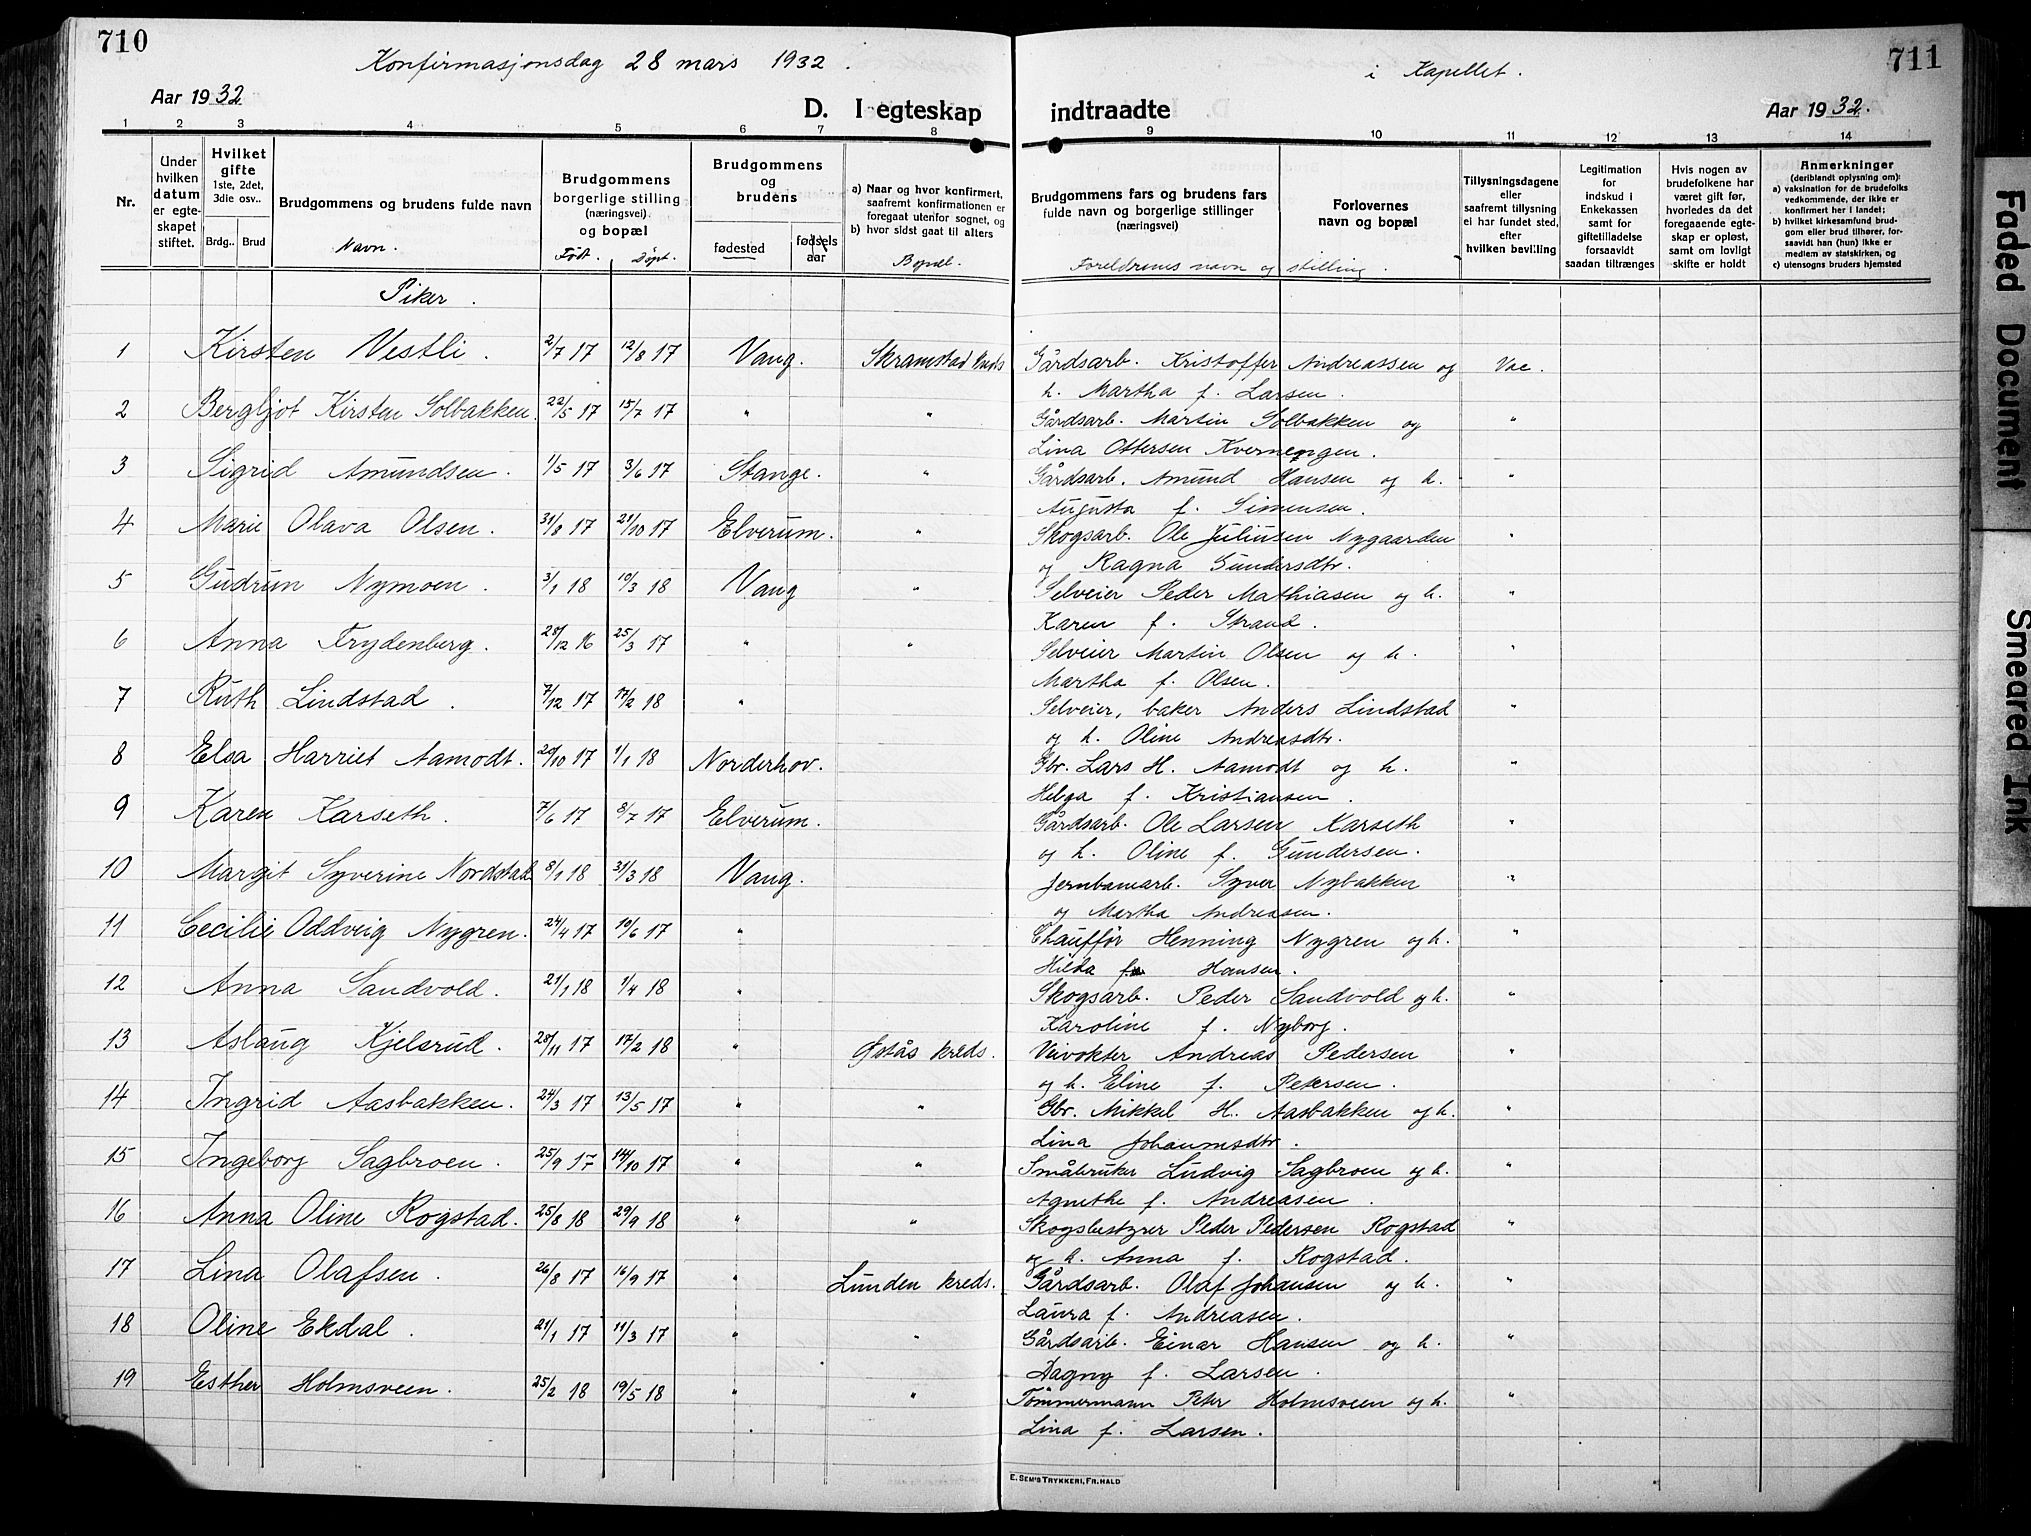 710
Konfirmasjonsdag 28 mars 1932.
i Kapellet.
711
Aar 1932
D. I egteskap
indtraadte
Aar 1932.
1 2 3 4 5 6 7 8 9 10 11 12 13 14
Nr.
Under hvilken datum er egteskapet stiftet.
Hvilket gifte 1ste, 2det, 3die osv..
Brdg.. Brud
Brudgommens og brudens fulde navn
Navn.
Brudgommens borgerlige stilling (næringsvei) og bopæl
Født. Døpt.
Brudgommens og brudens
fødested
fødsels aar
a) Naar og hvor konfirmert, saafremt konfirmationen er foregaat utenfor sognet, og
b) hvor sidst gaat til alters
Bopæl.
Brudgommens fars og brudens fars fulde navn og borgerlige stillinger (næringsvei)
Foreldrenes navn og stilling.
Forlovernes navn og bopæl
Tillysningsdagene eller saafremt tillysning ei har fundet sted, efter hvilken bevilling
Legitimation for indskud i Enkekassen samt for giftetilladelse forsaavidt saadan tiltrænges
Hvis nogen av brudefolkene har været gift før, hvorledes da det foregaaende egteskap er opløst, samt om lovligt skifte er holdt
Anmerkninger (deriblandt oplysning om):
a) vaksination for de brudefolks vedkommende, der ikke er konfirmert her i landet;
b) hvilket kirkesamfund brudgom eller brud tilhører, forsaavidt han (hun) ikke er medlem av statskirken, og
c) utensogns bruders hjemsted
Piker.
1 Kirsten Vestli. 2/7 17 12/8 17 Vang. Skramstad kreds Gårdsarb. Kristoffer Andreassen og Vac.
h. Martha f. Larsen.
2 Bergljot Kirsten Solbakken. 22/5 17 15/7 17 " " Gårdsarb. Martin Solbakken og "
Lina Ottersen Kvernengen.
3 Sigrid Amundsen. 1/5 17 3/6 17 Stange. " Gårdsarb. Amund Hansen og h. "
Augusta f. Simensen.
4 Marie Olava Olsen. 31/8 17 21/10 17 Elverum. " Skogsarb. Ole Juliusen Nygaarden "
og Ragna Gundersdtr.
5 Gudrun Nymoen. 3/1 18 10/3 18 Vang " Selveier Peder Mathiasen og h. "
Karen f. Strand.
6 Anna Frydenberg. 28/12 16 25/3 17 " " Selveier Martin Olsen og h. "
Martha f. Olsen.
7 Ruth Lindstad. 7/12 17 17/2 18 " Selveier, baker Anders Lindstad "
og h. Oline Andreasdtr.
8 Elsa Harriet Aamodt. 20/10 17 1/1 18 Norderhov. Gbr. Lars H. Aamodt og h. "
Helga f. Kristiansen.
9 Karen Karseth. 7/6 17 8/7 17 Elverum. Gårdsarb. Ole Larsen Karseth "
og h. Oline f. Gundersen.
10 Margit Syverine Nordstad 8/1 18 31/3 18 Vang. Jernbanearb. Syver Nybakken "
og Martha Andreasen.
11 Cecilie Oddveig Nygren. 24/4 17 10/6 17 " Chauffør Henning Nygren og h. "
Hilda f. Hansen.
12 Anna Sandvold. 21/1 18 1/4 18 " Skogsarb. Peder Sandvold og h. "
Karoline f. Nyborg.
13 Aslaug Kjelsrud. 28/11 17 17/2 18 " Østås kreds. Veivokter Andreas Pedersen "
og h. Eline f. Petersen.
14 Ingrid Aasbakken. 24/3 17 13/5 17 " " Gbr. Mikkel H. Aasbakken og h. "
Lina Johannesdtr.
15 Ingeborg Sagbroen. 25/9 17 14/10 17 " " Småbruker Ludvig Sagbroen og h. "
Agnethe f. Andreasen.
16 Anna Oline Rogstad. 25/8 18 29/9 18 " " Skogsbestyrer Peder Pedersen Rogstad "
og h. Anna f. Rogstad.
17 Lina Olafsen. 26/8 17 16/9 17 " Lunden kreds. Gårdsarb. Olaf Johansen og h. "
Laura f. Andreasen.
18 Oline Ekdal. 21/1 17 11/3 17 " " Gårdsarb. Einar Hansen og h. "
Dagny f. Larsen.
19 Esther Holmsveen. 25/2 18 19/5 18 " " Tømmermann Peter Holmsveen og h. "
Lina f. Larsen.
E. SEM'S TRYKKERI, FR.HALD
Faded Document
Smeared Ink